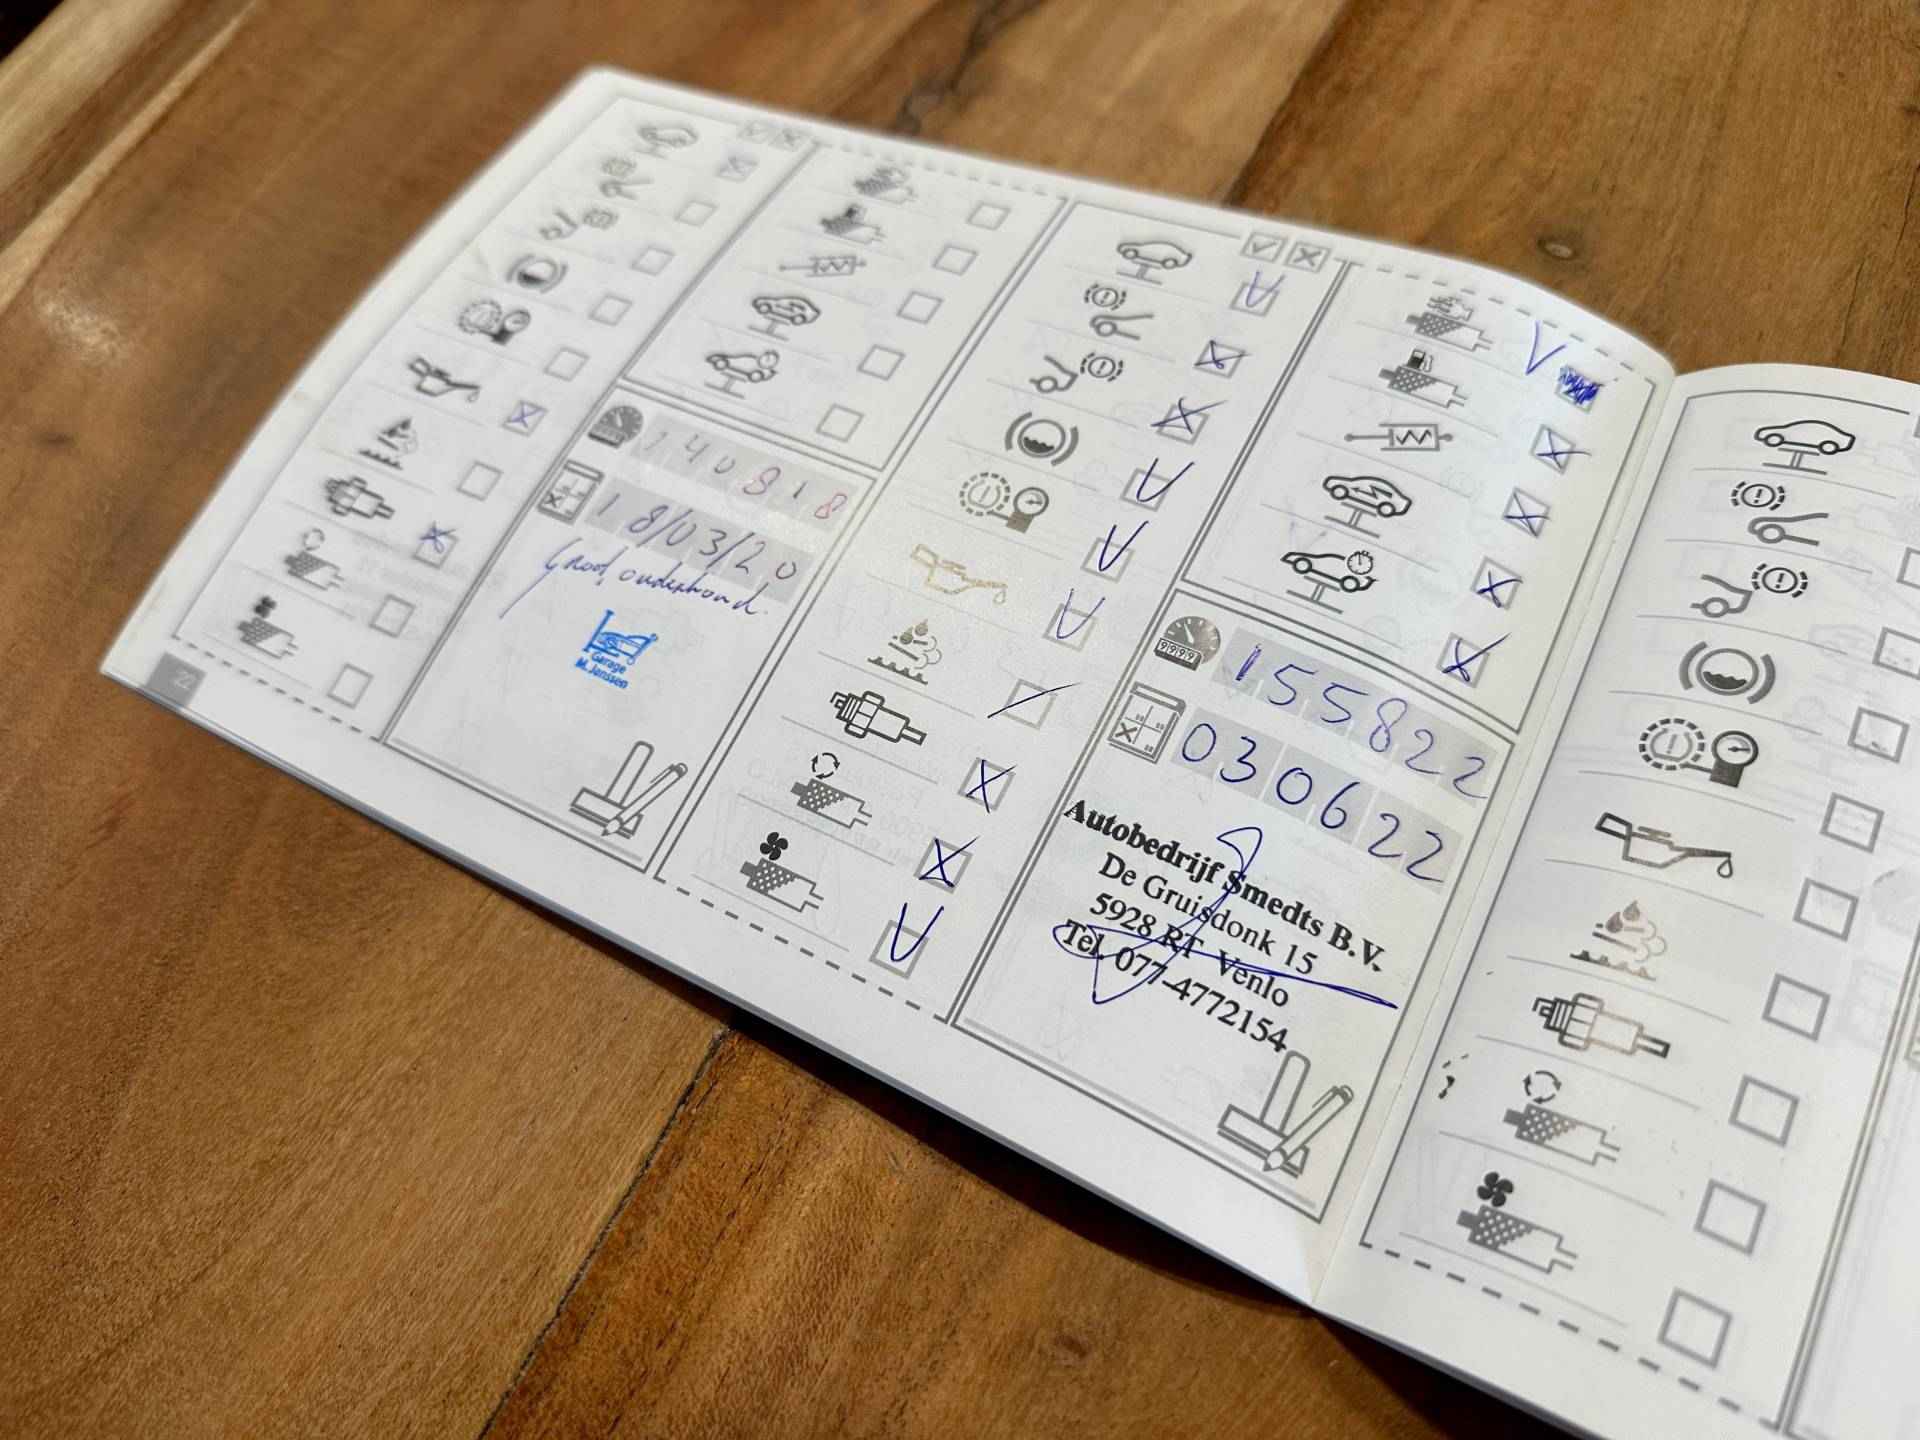 140818
18/03/20
Groot onderhoud.
Garage
M. Janssen
22
9999
155822
030622
Autobedrijf Smedts B.V.
De Gruisdonk 15
5928 RT Venlo
Tel. 077-4772154